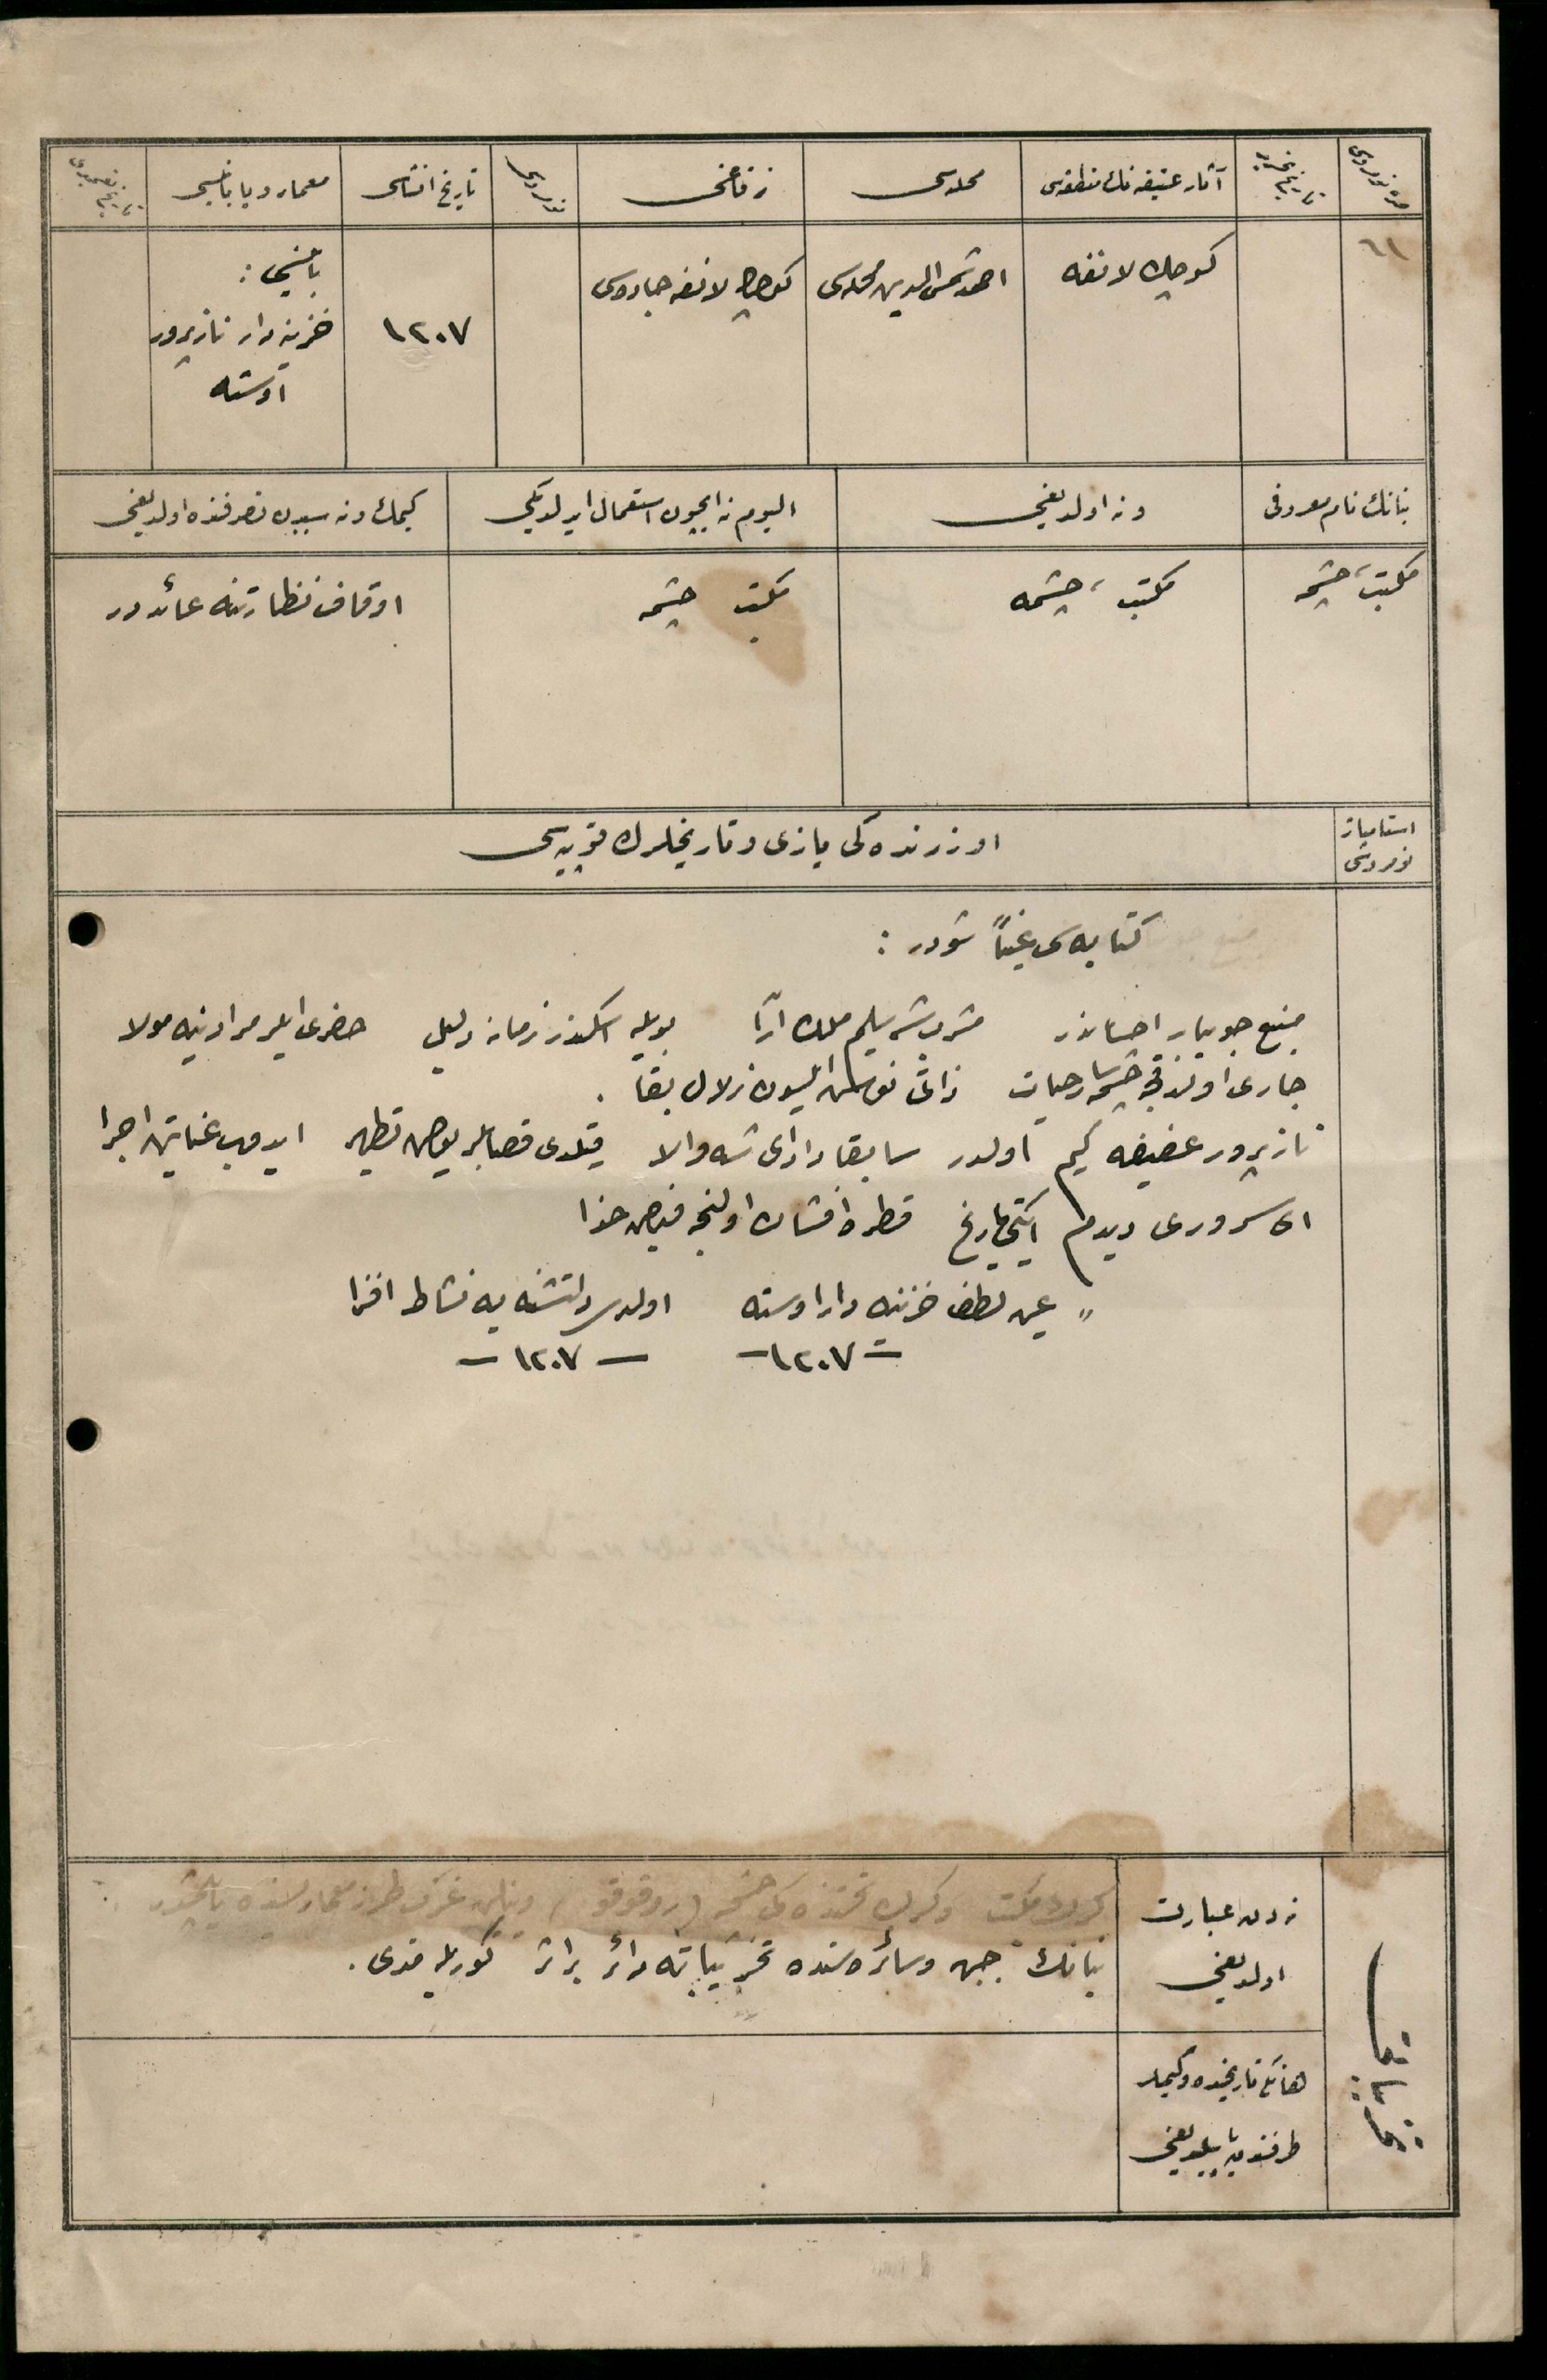 صره نومروسی
تاریخ تحریر
آثار عتیقه‌نك منطقه‌سی
محله‌سی
زقاغی
نومروسی
تاریخ انشاسی
معمار ویا بانیسی
تاریخ تعمیری
٦١
كوچك لانغه
احمد شمس الدین محله‌سی
كوچك لانغه جاده‌سی
١٢٠٧
بانیسی :
خزینه‌دار نازپرور
اوسته
بنانك نام معروفی
و نه اولدیغی
الیوم نه ایچون استعمال ایدلدیكی
كیمك و نه سببدن تصرفنده اولدیغی
مكتب، چشمه
مكتب ، چشمه
مكتب چشمه
اوقاف نظارتنه عائددر
استامپاژ
نومروسی
اوزرنده‌كی یازی و تاریخلرك قوپیه‌سی
كتابه‌سی عیناً شودر :
منبع جویبار احساندر مشرب شه سلیم ملك آرا بویله اسكندر زمانه دلیل خضری ایلر مرادینه مولا
جاری اولدقجه چشمه‌سار حیات ذاتی نوش ایلسون زلال بقا .
نازپرور عفیفه كیم اولدر سابقا دادای شه والا قیلدی قصابلر یولن تطهیر ایدوب عنایتن اجرا
ای سروری دیدم ایكی تاریخ قطره افشان اولنجه فیض خدا
" عین لطف خزینه دار اوسته اولدی دلتشنه یه نشاط افزا
- ١٢٠٧ - - ١٢٠٧ -
تخریبات
نه‌دن عبارت
اولدیغی
كرك مكتب و كرك تحتنده‌كی چشمه (روقوقو) دینلن غرب طرز معماریسنده یاپلمشدر .
بنانك جبهه و سائره‌سنده تخریباته دائر بر اثر كوریله‌مدی .
هانكی تاریخده و كیملر
طرفندن یاپیلدیغی